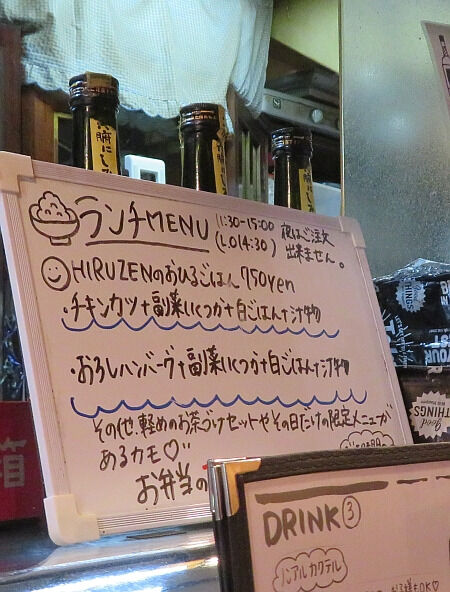 ランチMENU
11:30-15:00
(L.O14:30)
夜はご注文
出来ません。
HIRUZENのおひるごはん 750yen
・チキンカツ+副菜いくつか+白ごはん+汁物
・おろしハンバーグ+副菜いくつか+白ごはん+汁物
その他、軽めのお茶づけセットやその日だけの限定メニューが
あるカモ♡
お弁当の
DRINK③
ノンアルカクテル
YOUR
good
THINGS
箱